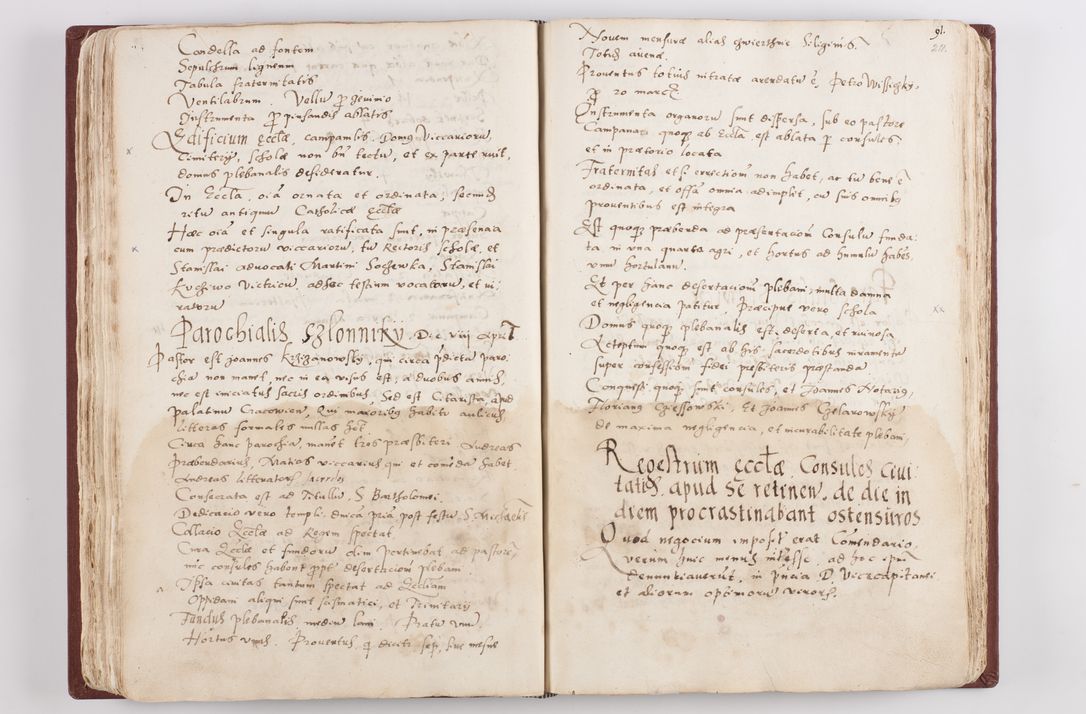 Candella ad fontem
Sepulchrum ligneum
Tabula fraternitatis
Ventilabrum. Vellu p Jeiunio
Instrumenta p piusandis ablatis
Edificium eccłæ, campanłis. Domus Viccarioru
Cimiterÿ, scholæ non bn tectu, et ex parte ruit,
domus plebanalis desideratur.
In Eccła, oia ornata et ordinata, secund
ritu antiquu Catholicæ Eccłæ
Hæc oia et singula ratificata sunt, in præsencia
cum prædictoru viccarioru, tu Rectoris scholæ, et
Stanislai advocati Martini Sochewka, Stanislai
Kuchiwo Victricu, adhec testium vocatoru, et ui,
ratoru
Parochialis Szłomniky, Die viij Apri
Pastor est Joannes Krzÿzanowsky, qui circa pdicta paro,
chia non manet, nec in ea visus est, a duobus annis,
nec est iniciatus sacris ordinibus, Sed est Citarista, apud
palatinu Cracovien, Qui maioribus habitu aulicus
litteras formales nullas het.
Circa hanc parochia, manet tres præsbiteri. Andreas
Præbendarius, Matias viccarius qui et comeda habet
Andreas litterator sacerdos
Consecrata est ad Titullu S Bartholomei.
Dedicacio vero templi, dnica pria post festu S. Michaelis
Collacio Eccłæ ad Regem spectat.
Cura Eccłæ et fundoru olim pertinebat ad pastore
nuc consules habent ppt desertacionem plebani
Ipsa civitas tantum spectat ad Eccliam
Oppidani aliqui sunt scismatici, et Trinitarÿ
Fundus plebanalis, mediu lani. Pratu vnu,
Hortus vnus. Proventus, q decuti sep, siue messis
91.
211.
Novem mensuræ alias chwierthnie siliginis.
Totid avenæ.
Proventus totius intratæ arendatu e, Petro Wissickky,
p 20 marc
Instrumenta organoru sunt dispersa, sub eo pastore
Campanaq quoq ab Eccła est ablata p consules
et in prætorio locata
Fraternitas etsi erectione non habet, ac tu bene e
ordinata, et offa omnia adimplet, cu suis omnibus
proventibus est integra
Est quoq præbenda ad præsentacione Consulu funda,
ta in vna quarta agri, et hortus ad humulu habes
vnu hortulanu.
Et per hanc desertacione plebani, multa damna
et negligencia patitur, Præcipue vero schola
Domus quoq plebanalis est, deserta et ruinosa
Receptum quoq est ab his sacerdotibus iuramentu
super confessione fidei presbiteris præstanda
Conquesti quoq sunt, consules, et Joannes Notarius,
Florianus Chessowski, Et Joannes Czekarowskÿ
de maxima negligencia, et incurabilitate plebani,
Regestrum eccłæ Consules Ciui,
tatis, apud se retinen, de die in
diem procrastinabant ostensuros
Quod negocium imposit erat Comendario
verum huic menus interesse, ad hoc ipm
denuntiaverut, in pncia D. Vicecapitanei
et aliorum optimoru virors.